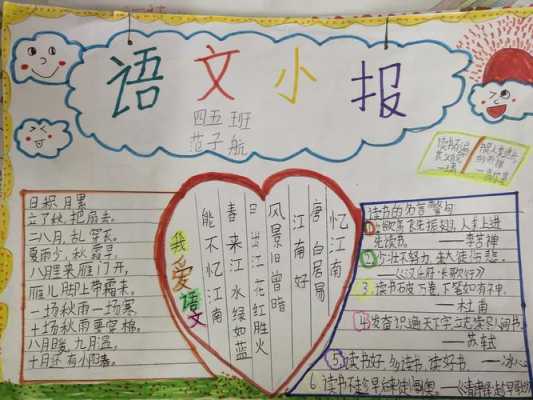 语文小报
四五班
范子航
日积月累
立了秋,把扇丢。
二八月,乱穿衣。
夏雨少,秋霜早。
八月里来雁门开,
雁儿脚上带霜来。
一场秋雨一场寒
十场秋雨要穿棉。
八月暖,九月温,
十月还有小阳春。
我爱语文
忆江南
唐 白居易
江南好
风景旧曾谙
日出江花红胜火
春来江水绿如蓝
能不忆江南
读书的名言警句
先读书。——李苦禅
②少壮不努力,老大徒伤悲。
——《汉乐府·长歌行》
3.读书破万卷,下笔如有神。
——杜甫
4.发奋识遍天下字,立志读尽人间书。
——苏轼
⑤读书好,多读书,读好书。——冰心